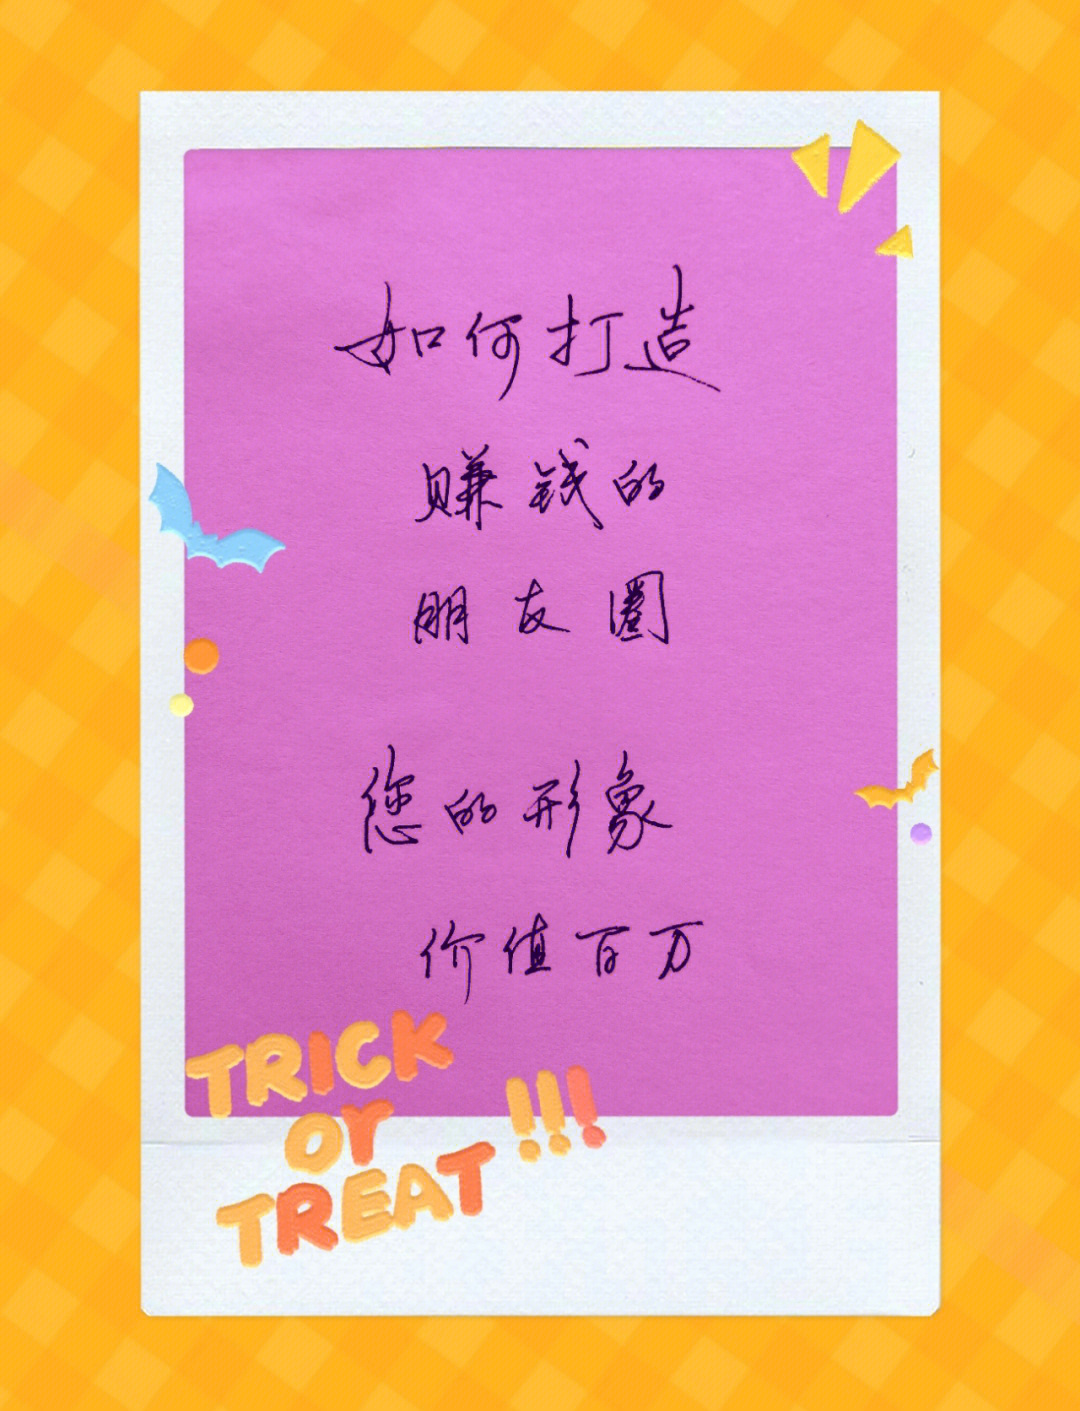 如何打造
赚钱的
朋友圈
您的形象
价值百万
TRICK
or
TREAT!!!